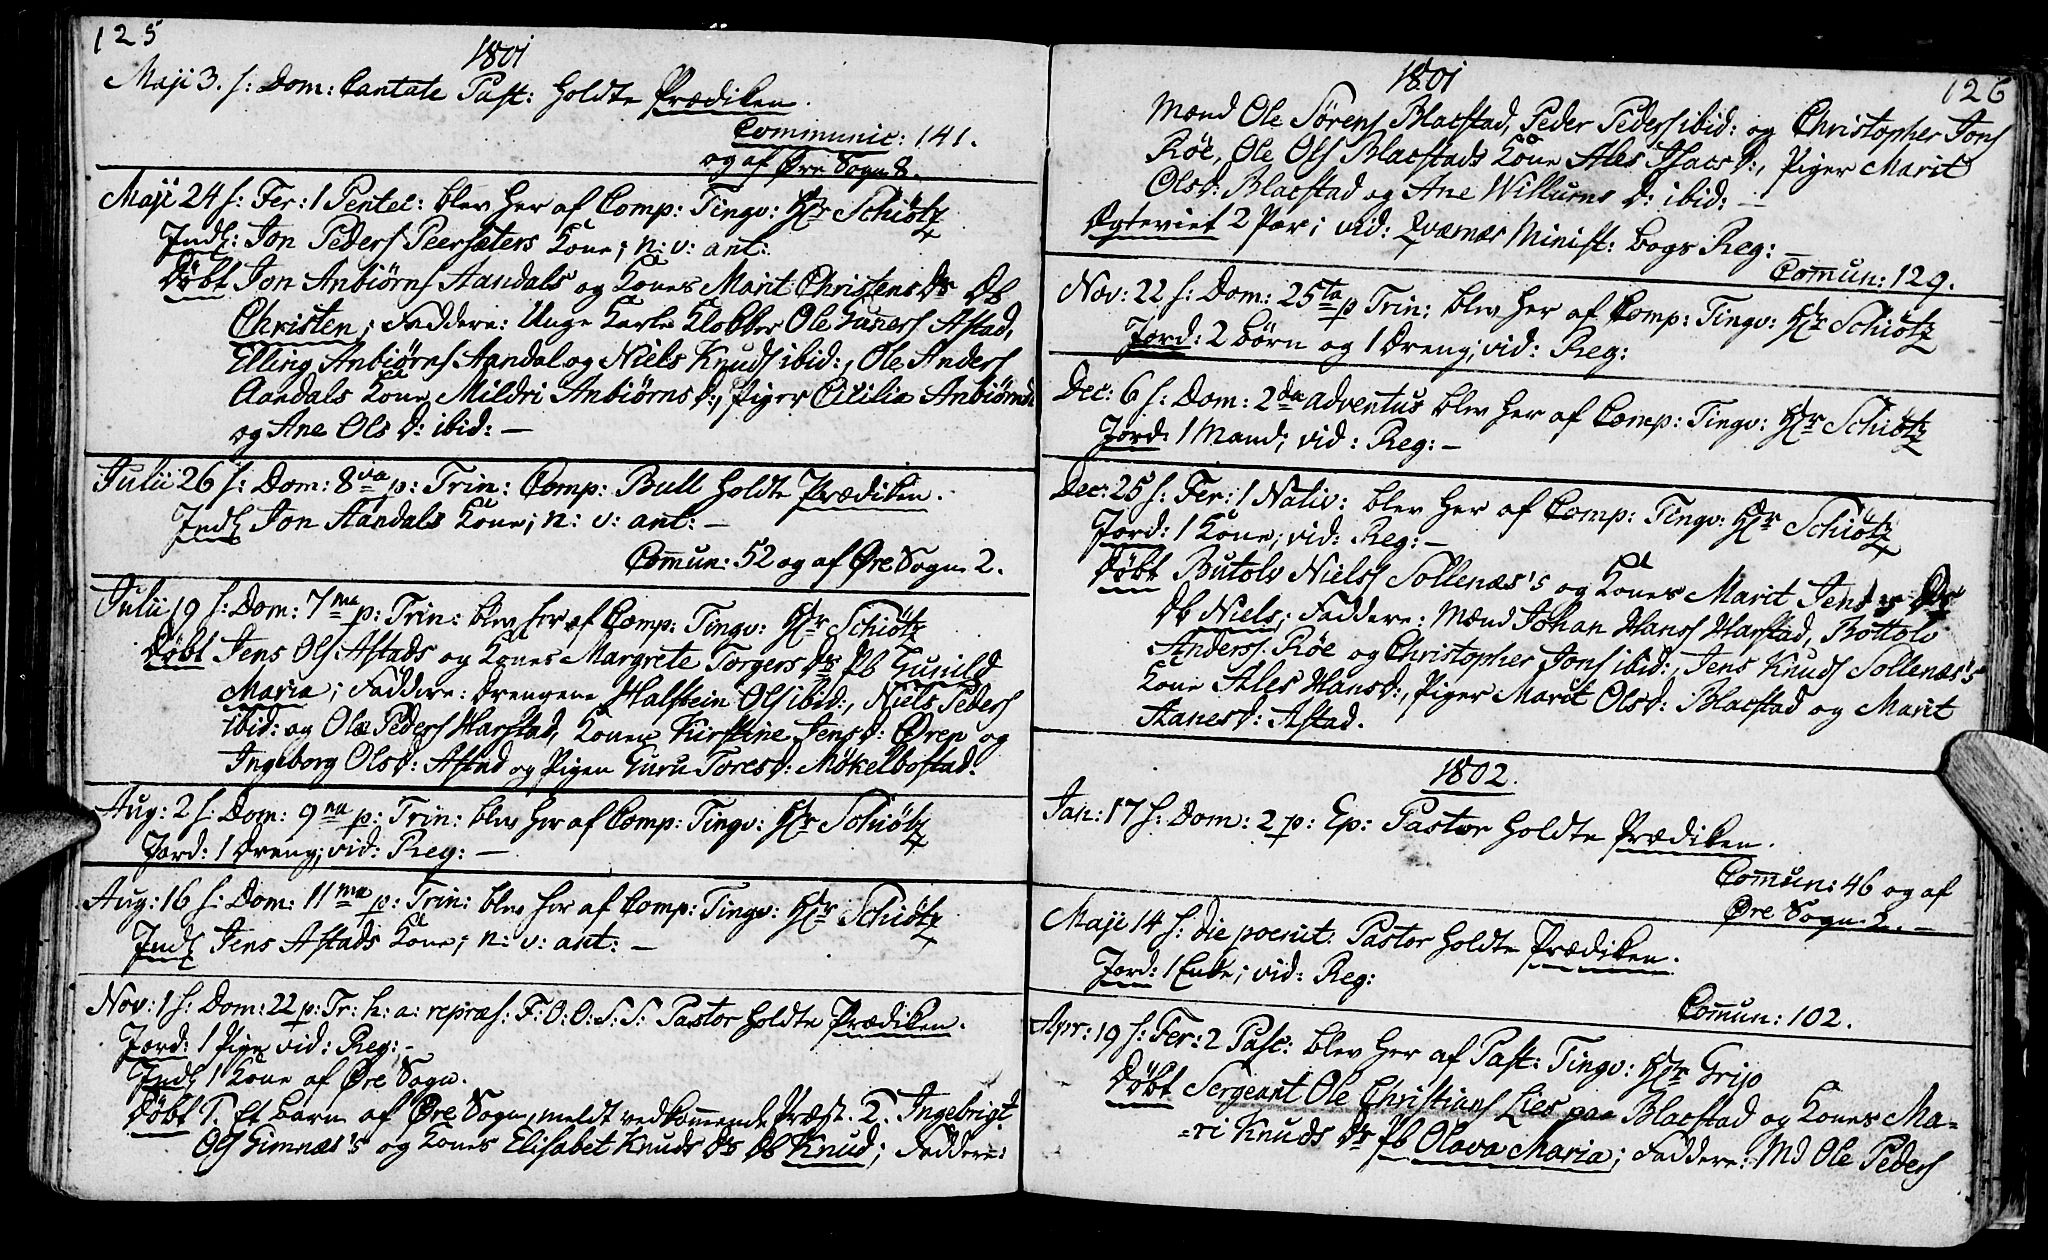 125
1801
Maji 3. s: Dom: Cantate Past: holdte Prædiken.
Communic: 141.
og af Øre Sogn 8.
Maji 24 s: Fer: 1 Pentec: blev her af Comp: Tingv: Hr Schiøtz
Indl: Jon Peders Peersæters Kone; n: v: ant:
Døbt Jon Anbiørns Aandals og Kones Marit Christens Dr Db
Christen; Faddere: Unge Karle Klokker Ole Guners Astad,
Elling Anbiørns Aandal og Niels Knuds ibid:, Ole Anders
Aandals Kone Mildri Anbiørns D:, Piger Cicilia Anbiørnsd:
og Ane Ols D: ibid: —
Julii 26 s: Dom: 8va p: Trin: Comp: Bull holdte Prædiken.
Indl Jon Aandals Kone; n: v: ant: —
Comun: 52 og af Øre Sogn 2.
Julii 19 s: Dom: 7ma p: Trin: blev her af Comp: Tingv: Hr Schiøtz
Døbt Jens Ols Astads og Kones Margrete Torgers Dr Pb Gunild
Maria; Faddere: Drengene Halstein Ols ibid:, Niels Peders
ibid: og Ola Peders Harstad, Konen Kirstine Jensd: Øren og
Ingeborg Olsd: Astad og Pigen Guru Toresd: Mökelbostad.
Aug: 2 s: Dom: 9na p: Trin: blev her af Comp: Tingv: Hr Schiøtz
Jord: 1 Dreng; vid: Reg: —
Aug: 16 s: Dom: 11ma p: Trin: blev her af Comp: Tingv: Hr Schiøtz
Indl Jens Astads Kone; n: v: ant: —
Nov: 1 s: Dom: 22 p: Tr: h: a: repræs: F: O: O: S: S: Pastor holdte Prædiken.
Jord: 1 Pige vid: Reg: —
Indl 1 Kone af Øre Sogn.
Døbt T. Et barn af Øre Sogn, meldt vedkomende Præst. T. Ingebrigt
Ols Gimnæs's og Kones Elisabet Knuds Dr Db Knud; Faddere:
1801
126
Mænd Ole Sørens Blacstad, Peder Peders ibid: og Christopher Jons
Röe, Ole Ols Blacstads Kone Ales Isacs D:, Piger Marit
Olsd: Blacstad og Ane Willums D: ibid: —
Ægteviet 2 Par; vid: Qværnæs Minist: bogs Reg: —
Comun: 129.
Nov: 22 s: Dom: 25ta p Trin: blev her af Comp: Tingv: Hr Schiøtz
Jord: 2 börn og 1 Dreng; vid: Reg:
Dec: 6 s: Dom: 2da adventus blev her af Comp: Tingv: Hr Schiøtz
Jord: 1 Mand; vid: Reg: —
Dec: 25 s: Fer: 1 Nativ: blev her af Comp: Tingv: Hr Schiøtz
Jord: 1 Kone; vid: Reg: —
Døbt Butolv Niels Sollenæs's og Kones Marit Jens Dr
Db Niels; Faddere: Mænd Johan Hans Harstad, Bottolv
Anders Röe og Christopher Jons ibid:, Jens Knuds Sollenæs's
Kone Ales Hansd:, Piger Marit Olsd: Blacstad og Marit
Aanesd: Astad.
1802.
Jan: 17 s: Dom: 2 p: Ep: Pastor holdte Prædiken.
Comun: 46 og af
Øre Sogn 2. —
Maji 14 s: die poenit: Pastor holdte Prædiken.
Jord: 1 Enke; vid: Reg:
Comun: 102.
Apr: 19 s: Fer: 2 Pasc: blev her af Past: Tingv: Hr Grip
Døbt Sergeant Ole Christians Lies paa Blacstad og Kones Ma-
-ri Knuds Dr Pb Olava Maria; Faddere: Md Ole Peders